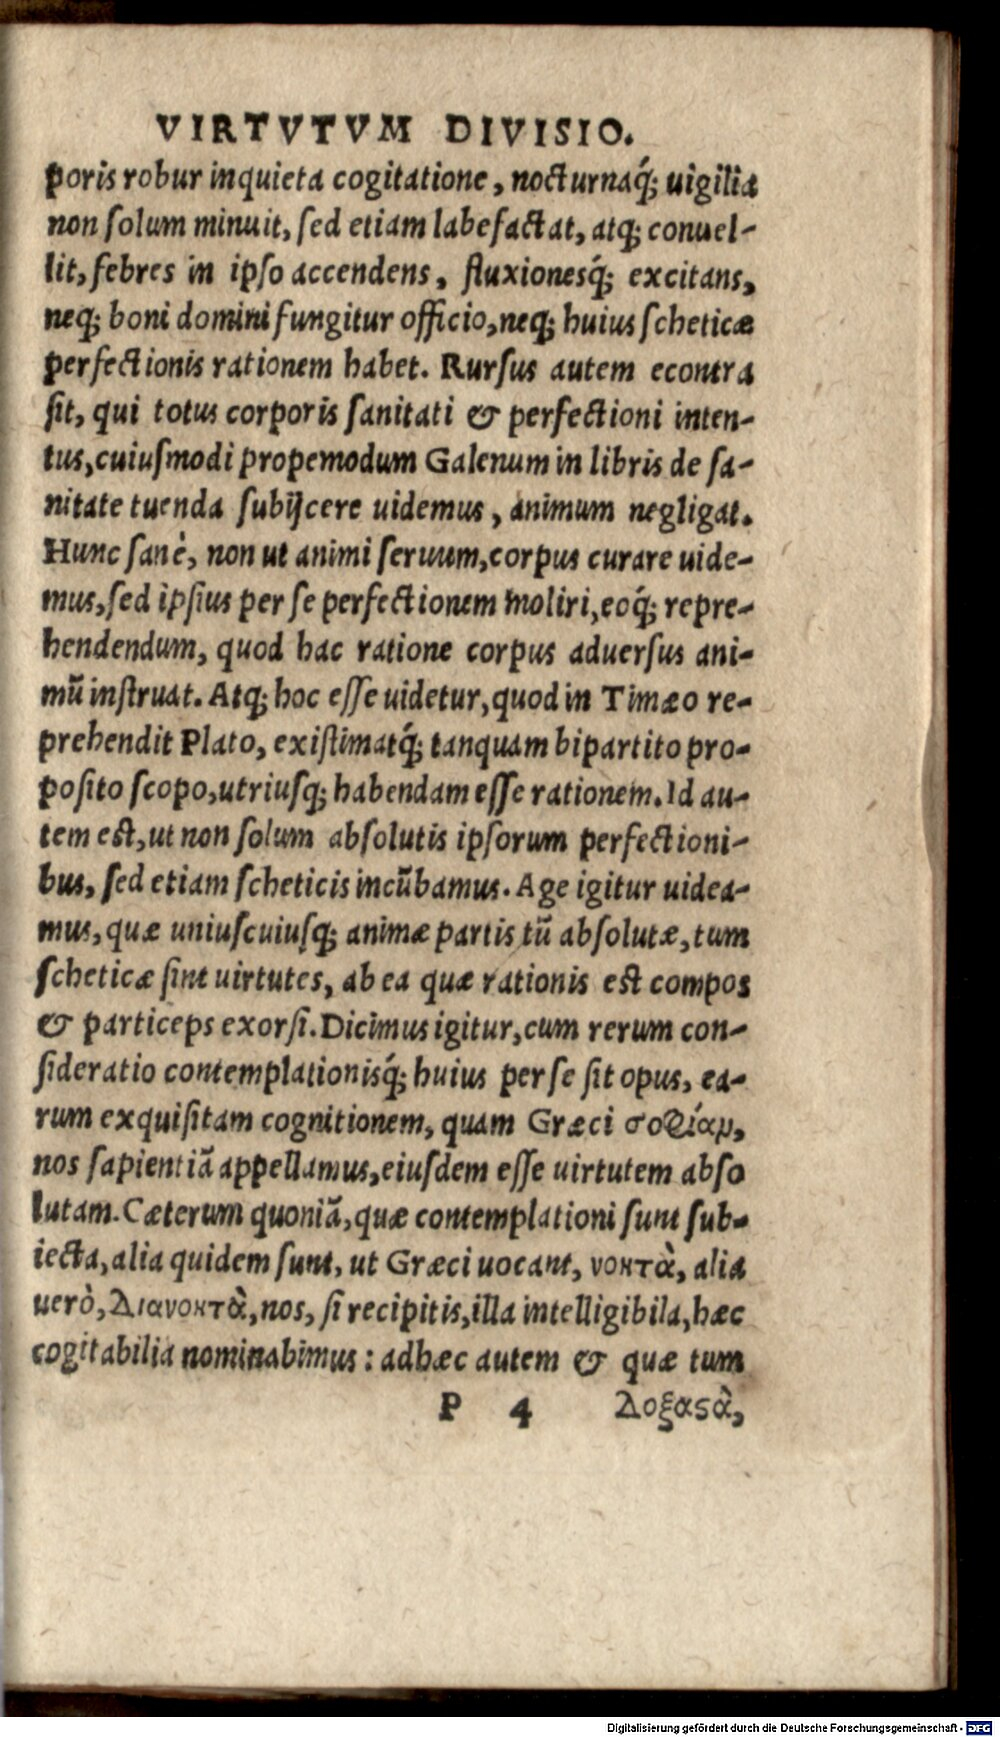 VIRTVTVM DIVISIO.
poris robur inquieta cogitatione, nocturnaq́; uigilia
non ſolum minuit, ſed etiam labefactat, atq; conuel-
lit, febres in ipſo accendens, fluxionesq́; excitans,
neq; boni domini fungitur officio, neq; huius ſcheticæ
perfectionis rationem habet. Rurſus autem econtra
ſit, qui totus corporis ſanitati & perfectioni inten-
tus, cuiuſmodi propemodum Galenum in libris de ſa-
nitate tuenda ſubijcere uidemus, animum negligat.
Hunc ſanè, non ut animi ſeruum, corpus curare uide-
mus, ſed ipſius per ſe perfectionem moliri, eoq́; repre-
hendendum, quod hac ratione corpus aduerſus ani-
mũ inſtruat. Atq; hoc eſſe uidetur, quod in Timæo re-
prehendit Plato, exiſtimatq́; tanquam bipartito pro-
poſito ſcopo, utriuſq; habendam eſſe rationem. Id au-
tem eſt, ut non ſolum abſolutis ipſorum perfectioni-
bus, ſed etiam ſcheticis incũbamus. Age igitur uidea-
mus, quæ uniuſcuiuſq; animæ partis tũ abſolutæ, tum
ſcheticæ ſint uirtutes, ab ea quæ rationis eſt compos
& particeps exorſi. Dicimus igitur, cum rerum con-
ſideratio contemplationisq́; huius per ſe ſit opus, ea-
rum exquiſitam cognitionem, quam Græci σοφίαμ,
nos ſapientiã appellamus, eiuſdem eſſe uirtutem abſo
lutam. Cæterum quoniã, quæ contemplationi ſunt ſub-
iecta, alia quidem ſunt, ut Græci uocant, νοητὰ, alia
uerò, διανοητὰ, nos, ſi recipitis, illa intelligibila, hæc
cogitabilia nominabimus: adhæc autem & quæ tum
P 4 δοξαϛὰ,
Digitalisierung gefördert durch die Deutsche Forschungsgemeinschaft - DFG